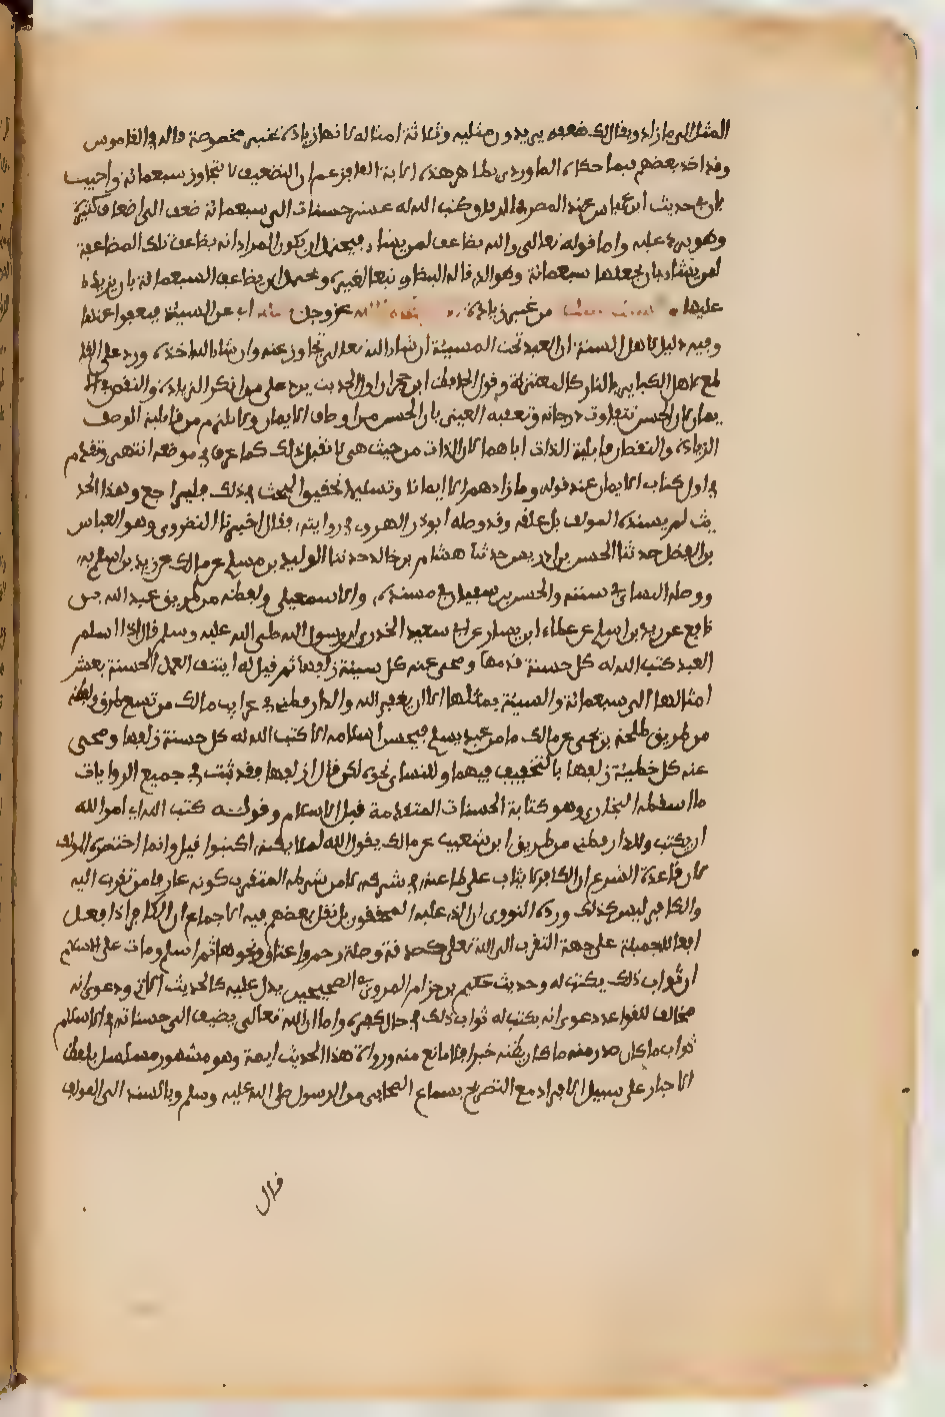 المثل الى ما زاد ويقال لك ضعفه يريدون مثليه وثلاثة امثاله لانها زيادة غير محصورة قاله في القاموس
وقد اخذ بعضهم فيما حكاه الماوردي بظاهر هذه الاية الغا فزعم ان التضعيف لا يتجاوز سبعمائة واجيب
بان في حديث ابن عباس عند المصنف في الرقاق كتب الله له عشر حسنات الى سبعمائة ضعف الى اضعاف كثيرة
وهو يرد عليه واما قوله تعالى والله يضاعف لمن يشاء فيحتمل ان يكون المراد انه يضاعف تلك المضاعفة
لمن يشاء بان يجعلها سبعمائة وهو الذي قاله البيضاوي تبعا لغيره ويحتمل ان يضاعف السبعمائة بان يزيد
عليها من غير زيادة عز وجل اي عن السيئة فيعفوا عنها
وفيه دليل لاهل السنة ان العبد تحت المشيئة ان شاء الله تعالى تجاوز عنه وان شاء الله اخذه ورد على القا
طع لاهل الكبائر بالنار كالمعتزلة وقول الحافظ ابن حجر ان اول الحديث يرد على من انكر الزيادة والنقص في الا
يمان لان الحسن تتفاوت درجاته وتعقبه العيني بان الحسن من اوصاف الايمان ولا يلزم من قابلية الوصف
الزيادة والنقصان قابلية الذات اياهما لان الذات من حيث هي لا تقبل ذلك كما عرف في موضعه انتهى وتقدم
في اول كتاب الايمان عند قوله وما زادهم الا ايمانا وتسليما تحقيق البحث في ذلك فليراجع وهذا الحد
يث لم يسنده المولف بل علقه وقد وصله ابو ذر الهروي في روايته فقال اخبرنا النضروي وهو العباس
بن الفضل حدثنا الحسن بن ادريس حدثنا هشام بن خالد حدثنا الوليد بن مسلم عن مالك عن زيد بن اسلم به
ووصله النساي في سننه والحسن بن سفيان في مسنده والاسمعيلي ولفظه من طريق عبد الله بن
نافع عن زيد بن اسلم عن عطاء بن يسار عن ابي سعيد الخدري ان رسول الله صلى الله عليه وسلم قال اذا اسلم
العبد كتب الله له كل حسنة قدمها ومحى عنه كل سيئة زلفها ثم قيل له ايتنف العمل الحسنة بعشر
امثالها الى سبعمائة والسيئة بمثلها الا ان يغفر الله والدارقطني في غرايب مالك من تسع طرق ولفظه
من طريق طلحة بن يحيى عن مالك ما من عبد يسلم فيحسن اسلامه الا كتب الله له كل حسنة زلفها ومحى
عنه كل خطيئة زلفها بالتخفيف فيهما وللنساي نحوه لكن قال ازلفها فقد ثبت في جميع الروايات
ما اسقطه البخاري وهو كتابة الحسنات المتقدمة قبل الاسلام وقوله كتب الله اي امر الله
ان يكتب وللدارقطني من طريق ابن شعيب عن مالك يقول الله لملائكته اكتبوا قيل وانما اختصره المولف
لان قاعدة الشرع ان الكافر لا يثاب على طاعته في شركه لان من شرط المتقرب كونه عارفا من تقرب اليه
والكافر ليس كذلك ورده النووي ان الذي عليه المحققون بل نقل بعضهم فيه الاجماع ان الكافر اذا فعل
افعالا جميلة على جهة التقرب الى الله تعالى كصدقة وصلة رحم واعتاق ونحوها ثم اسلم ومات على الاسلام
ان ثواب ذلك يكتب له وحديث حكيم بن حزام المروي في الصحيحين يدل عليه كالحديث الاتي ودعوى انه
مخالف للقواعد دعوى انه يكتب له ثواب ذلك في حال الكفر واما ان الله تعالى يضيف الى حسناته في الاسلام
ثواب ما كان صدر منه ما كان يظنه خيرا فلا مانع منه ورواة هذا الحديث ايمة وهو مشهور مسلسل بلفظ
الاخبار على سبيل الانفراد مع التصريح بسماع الصحابي من الرسول صلى الله عليه وسلم وبالسند الى المولف
قال